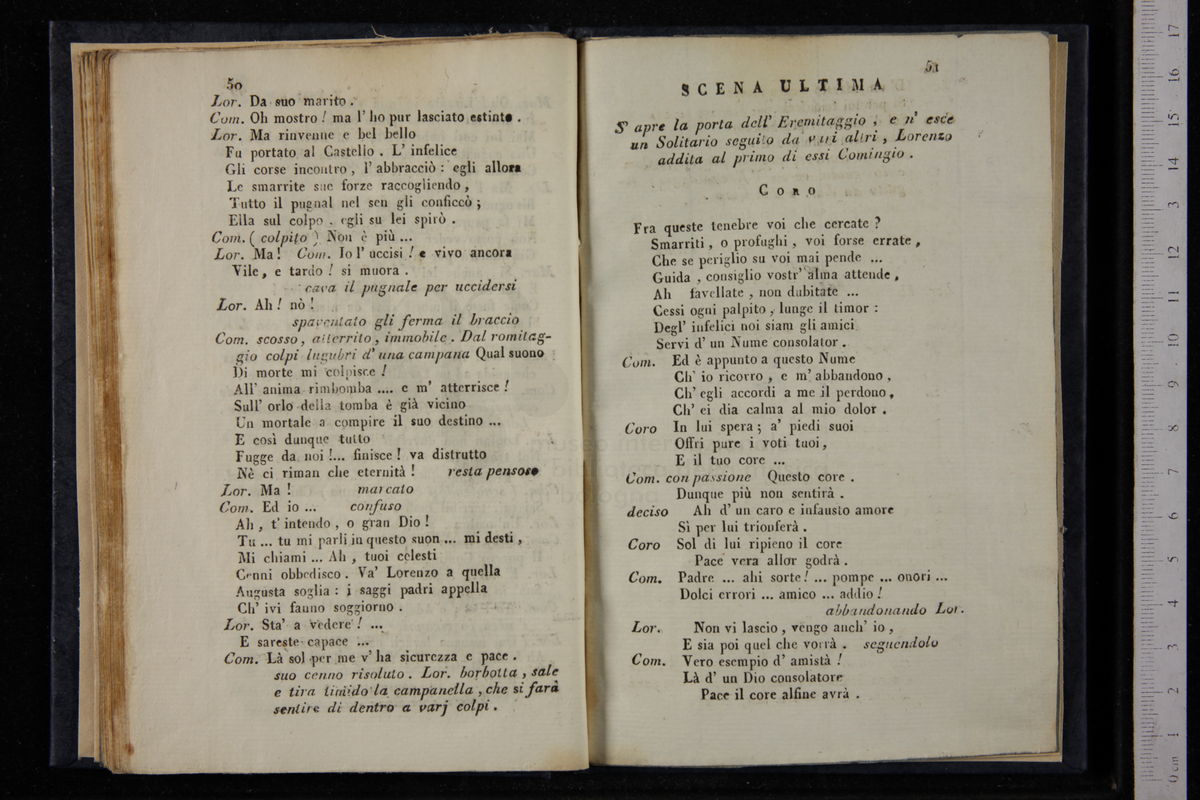 50
Lor. Da suo marito .
Com. Oh mostro ! ma l' ho pur lasciato estinto .
Lor. Ma rinvenne e bel bello
Fu portato al Castello . L' infelice
Gli corse incontro , l' abbracciò : egli allora
Le smarrite sue forze raccogliendo ,
Tutto il pugnal nel sen gli conficcò ;
Ella sul colpo . egli su lei spirò .
Com. ( colpito ) Non è più ...
Lor. Ma ! Com. Io l' uccisi ! e vivo ancora
Vile , e tardo ! si muora .
cava il pugnale per uccidersi
Lor. Ah ! nò !
spaventato gli ferma il braccio
Com. scosso , atterrito , immobile . Dal romitag-
gio colpi lugubri d' una campana Qual suono
Di morte mi colpisce !
All' anima rimbomba .... e m' atterrisce !
Sull' orlo della tomba è già vicino
Un mortale a compire il suo destino ...
E così dunque tutto
Fugge da noi !... finisce ! va distrutto
Nè ci riman che eternità ! resta pensoso
Lor. Ma ! marcato
Com. Ed io ... confuso
Ah , t' intendo , o gran Dio !
Tu ... tu mi parli in questo suon ... mi desti ,
Mi chiami ... Ah , tuoi celesti
Cenni obbedisco . Va' Lorenzo a quella
Augusta soglia : i saggi padri appella
Ch' ivi fanno soggiorno .
Lor. Sta' a vedere ! ...
E sareste capace ...
Com. Là sol per me v' ha sicurezza e pace .
suo cenno risoluto . Lor. borbotta , sale
e tira timido la campanella , che si farà
sentire di dentro a varj colpi .
51
SCENA ULTIMA
S' apre la porta dell' Eremitaggio , e n' esce
un Solitario seguito da varj altri , Lorenzo
addita al primo di essi Comingio .
CORO
Fra queste tenebre voi che cercate ?
Smarriti , o profughi , voi forse errate ,
Che se periglio su voi mai pende ...
Guida , consiglio vostr' alma attende ,
Ah favellate , non dubitate ...
Cessi ogni palpito , lunge il timor :
Degl' infelici noi siam gli amici
Servi d' un Nume consolator .
Com. Ed è appunto a questo Nume
Ch' io ricorro , e m' abbandono ,
Ch' egli accordi a me il perdono ,
Ch' ei dia calma al mio dolor .
Coro In lui spera ; a' piedi suoi
Offri pure i voti tuoi ,
E il tuo core ...
Com. con passione Questo core .
Dunque più non sentirà .
deciso Ah d' un caro e infausto amore
Sì per lui trionferà .
Coro Sol di lui ripieno il core
Pace vera allor godrà .
Com. Padre ... ahi sorte ! ... pompe ... onori ...
Dolci errori ... amico ... addio !
abbandonando Lor.
Lor. Non vi lascio , vengo anch' io ,
E sia poi quel che vorrà . seguendolo
Com. Vero esempio d' amistà !
Là d' un Dio consolatore
Pace il core alfine avrà .